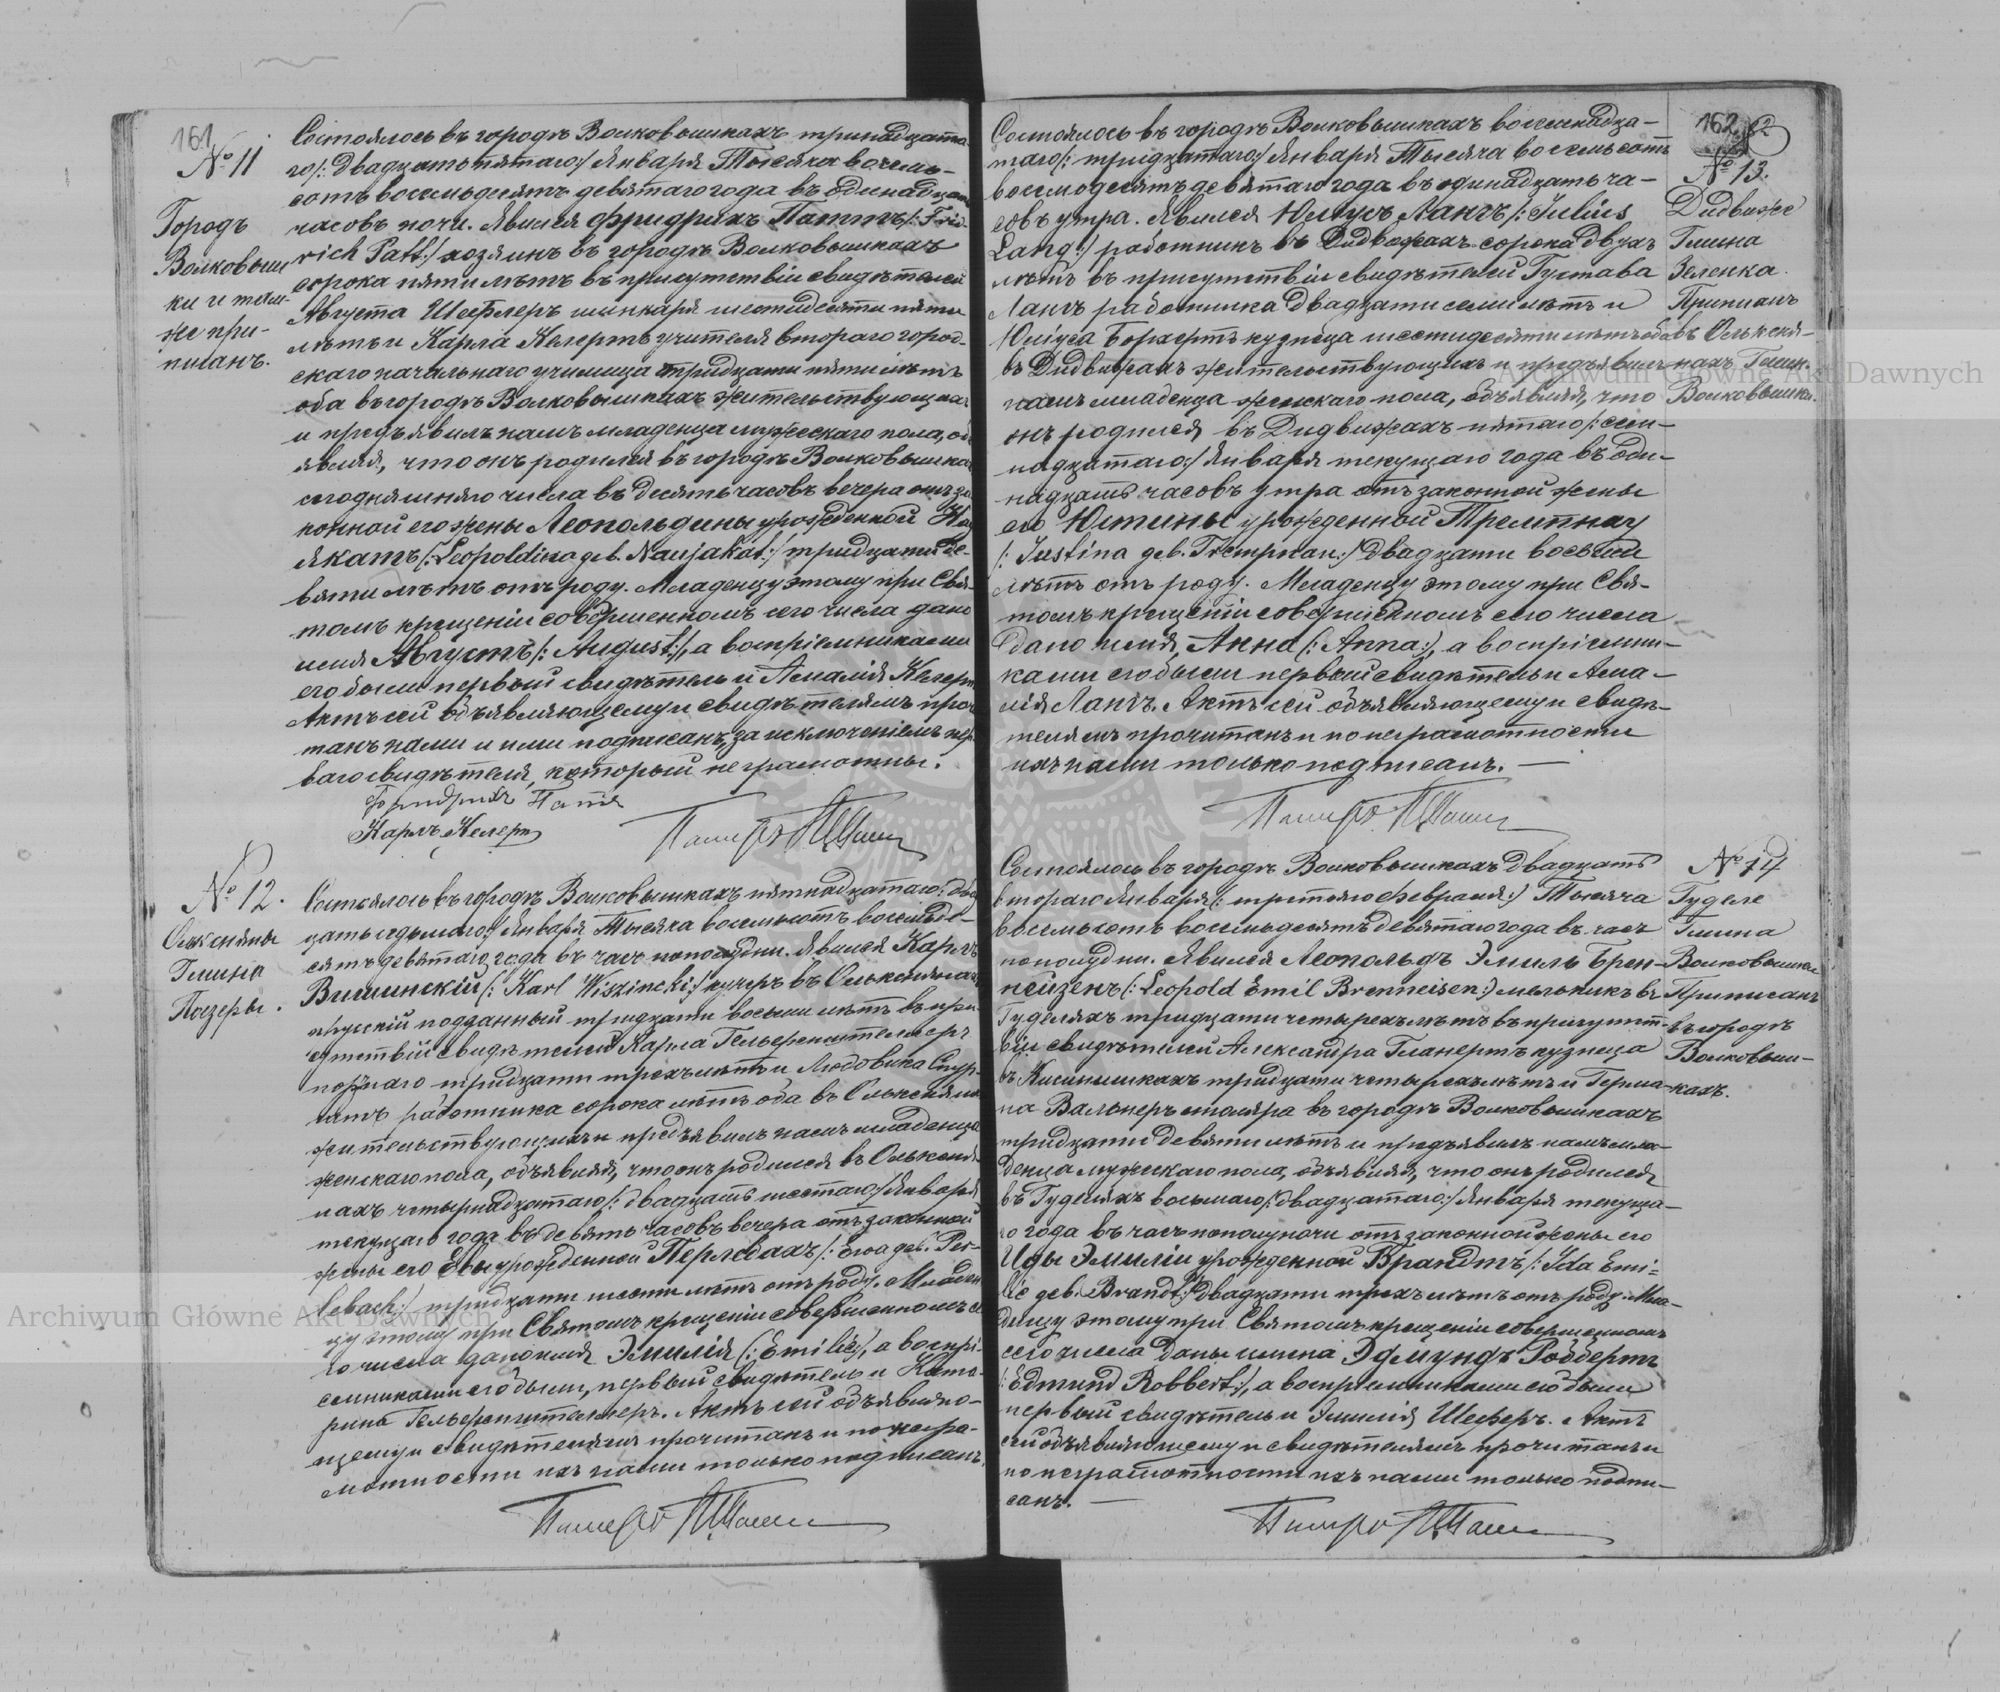 161
№ 11
Городъ
Волковыш
ки и там-
же при-
писанъ.
Состоялось въ городѣ Волковышкахъ тринадцата
го /: двадцать пятаго :/ Января Тысяча восемь-
сотъ восемьдесятъ девятаго года въ одинадцать
часовъ ночи. Явился Фридрихъ Паттъ /: Fried
rich Patt :/ хозяинъ въ городѣ Волковышкахъ
сорока пяти лѣтъ въ присутствіи свидѣтелей
Августа Шефлеръ шинкаря шестидесяти пяти
лѣтъ и Карла Келертъ учителя втораго город-
скаго начальнаго училища тридцати пяти лѣтъ
оба въ городѣ Волковышкахъ жительствующихъ
и предъявилъ намъ младенца мужескаго пола, об
являя, что онъ родился въ городѣ Волковышка
сегодняшняго числа въ десять часовъ вечера отъ за
конной его жены Леопольдины урожденной Нау
якатъ /: Leopoldina geb. Naujakat :/ тридцати де-
вяти лѣтъ отъ роду. Младенцу этому при Свя-
томъ крещеніи совершенномъ сего числа дано
имя Августъ /: August :/, а воспріемниками
его были первый свидѣтель и Амалія Келерт
Актъ сей объявляющему и свидѣтелямъ проч
танъ нами и ими подписанъ, за исключеніемъ пер
ваго свидѣтеля, который неграмотны.
Фридрихъ Патъ
Карлъ Келерт
№ 12.
Ольксняны
Гмина
Поезеры.
Состоялось въ городѣ Волковышкахъ пятнадцатаго /: два
цать седьмаго :/ Января Тысяча восемьсотъ восемьде-
сятъ девятаго года въ часъ пополудни. Явился Карлъ
Вишинскій /: Karl Wiszincki :/ кучеръ въ Олькснянахъ
прусскій подданный тридцати восьми лѣтъ въ при
сутствіи свидѣтелей Карла Гельфенштеллеръ
портнаго тридцати трехъ лѣтъ и Людовика Спур-
гатъ работника сорока лѣтъ оба въ Олькснянах
жительствующихъ и предъявилъ намъ младенца
женскаго пола, объявляя, что онъ родился въ Ольксня-
нахъ четырнадцатаго /: двадцать шестаго :/ Января
текущаго года въ девять часовъ вечера отъ законной
жены его Евы урожденной Перлебахъ /: Ewa geb. Per-
lebach :/ тридцати шести лѣтъ отъ роду. Младен
цу этому при Святомъ крещеніи совершенномъ се
го числа дано имя Эмилія (: Emilie :), а воспрі-
емниками его были, первый свидѣтель и Ката-
рина Гельфенштеллеръ. Актъ сей объявляю-
щему и свидѣтелямъ прочитанъ и по негра-
мотности ихъ нами только подписанъ.
162
№ 13.
Дидвиже
Гмина
Зеленка.
Приписанъ
въ Олькснян-
нахъ Гмин.
Волковышки.
Состоялось въ городѣ Волковышкахъ восемнадца-
таго /: тридцатаго :/ Января Тысяча восемьсотъ
восемьдесятъ девятаго года въ одинадцать ча-
совъ утра. Явился Юліусъ Лангъ /: Julius
Lang :/ работникъ въ Дидвижахъ сорока двухъ
лѣтъ въ присутствіи свидѣтелей Густава
Лангъ работника двадцати семи лѣтъ и
Юліуса Боргертъ кузнеца шестидесяти лѣтъ оба
въ Дидвижахъ жительствующихъ и предъявилъ
намъ младенца женскаго пола, объявляя, что
онъ родился въ Дидвижахъ пятаго /: сем-
надцатаго :/ Января текущаго года въ оди-
надцать часовъ утра отъ законной жены
его Юстины урожденной Тремпнау
/: Justina geb. Trempnau :/ двадцати восьми
лѣтъ отъ роду. Младенцу этому при Свя-
томъ крещеніи совершенномъ сего числа
дано имя, Анна (: Anna :), а воспріемни-
ками его были первый свидѣтель и Ама-
лія Лангъ. Актъ сей объявляющему и свидѣ-
телямъ прочитанъ и по неграмотности
ихъ нами только подписанъ. —
№ 14
Гуделе
Гмина
Волковышки
Приписанъ
въ городѣ
Волковыш-
кахъ.
Состоялось въ городѣ Волковышкахъ двадцать
втораго Января (: третяго Февраля :) Тысяча
восемьсотъ восемьдесятъ девятаго года въ часъ
пополудни. Явился Леопольдъ Эмиль Брен-
нейзенъ (: Leopold Emil Brenneisen :) мельникъ въ
Гуделяхъ тридцати четырехъ лѣтъ въ присутст-
віи свидѣтелей Александра Гланертъ кузнеца
въ Кисинишкахъ тридцати четырехъ лѣтъ и Герма-
на Вальнеръ столяра въ городѣ Волковышкахъ
тридцати девяти лѣтъ и предъявилъ намъ мла-
денца мужескаго пола, объявляя, что онъ родился
въ Гуделяхъ восьмаго /: двадцатаго :/ Января текуща-
го года въ часъ пополуночи отъ законной жены его
Иды Эмиліи урожденной Брандтъ /: Ida Emi-
lie geb. Brandt :/ двадцати трехъ лѣтъ отъ роду. Мла-
денцу этому при Святомъ крещеніи совершенномъ
сего числа даны имена Эдмундъ Роббертъ
/: Edmund Robbert :/, а воспріемниками его были
первый свидѣтель и Эмилія Шеферъ. Актъ
сей объявляющему и свидѣтелямъ прочитанъ и
по неграмотности ихъ нами только подпи-
санъ. —
Archiwum Główne Akt Dawnych
Archiwum Główne Akt Dawnych